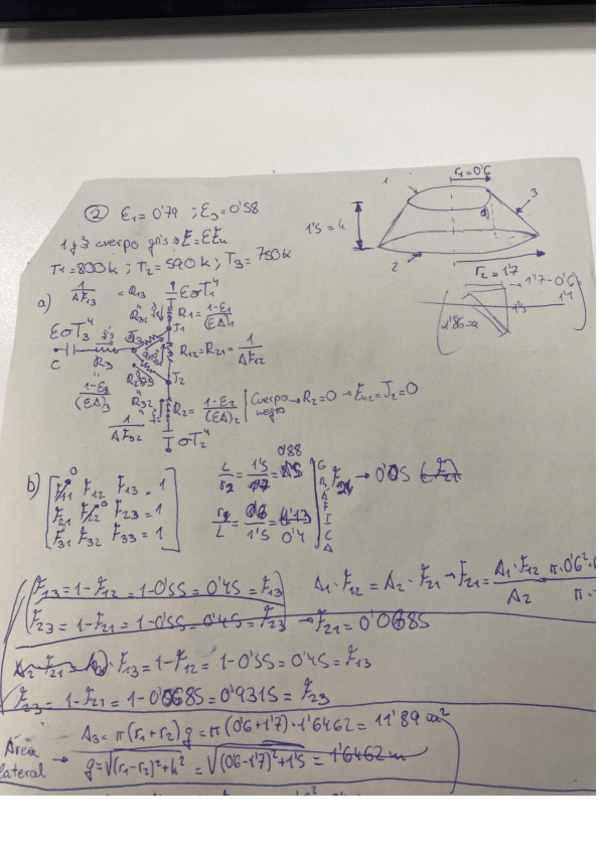 ② ε1 = 0'79 ; ε3 = 0'58
1 y 3 cuerpo gris ⇒ E = εEn
T1 = 800k ; T2 = 590k ; T3 = 750k
r1 = 0'6
1
3
1'5 = h
2
r2 = 1'7
1'7 - 0'6 =
1'1
1'5
1'86 = a
a)
1/AF13 = R13
εσT1^4
R1 = 1-ε1/(εA)1
J1
εσT3^4
J3
C
R3
1-ε3/(εA)3
R12 = R21 = 1/AF12
J2
R32
1/AF32
R2 = 1-ε2/(εA)2
Cuerpo negro → R2 = 0 → En2 = J2 = 0
σT2^4
b)
F11 F12 F13 = 1
F21 F22 F23 = 1
F31 F32 F33 = 1
L/r2 = 1'5/1'7 = 0'88
r1/L = 0'6/1'5 = 0'4
GRAFICA
F13 = 1 - F12 = 1 - 0'55 = 0'45 = F13
A1 · F12 = A2 · F21 → F21 = A1 · F12 / A2
π · 0'6²
π ·
F23 = 1 - F21 = 1 - 0'55 = 0'45 = F23
→ F21 = 0'0685
F13 = 1 - F12 = 1 - 0'55 = 0'45 = F13
F23 = 1 - F21 = 1 - 0'0685 = 0'9315 = F23
Área lateral →
A3 = π(r1 + r2) g = π(0'6 + 1'7) · 1'6462 = 11'89 m²
g = √(r1 - r2)² + h² = √(0'6 - 1'7)² + 1'5 = 1'6462 m